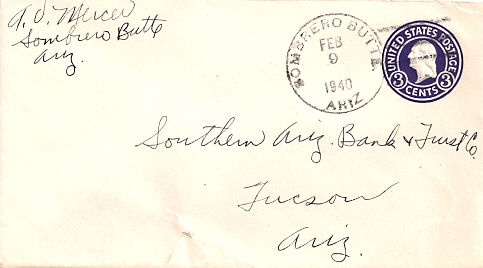 A. O. Mercer
Sombrero Butte
Ariz.
SOMBRERO BUTTE.
FEB
9
1940
ARIZ
UNITED STATES POSTAGE
3 3
CENTS
Southern Ariz. Bank & Trust Co.
Tucson
Ariz.